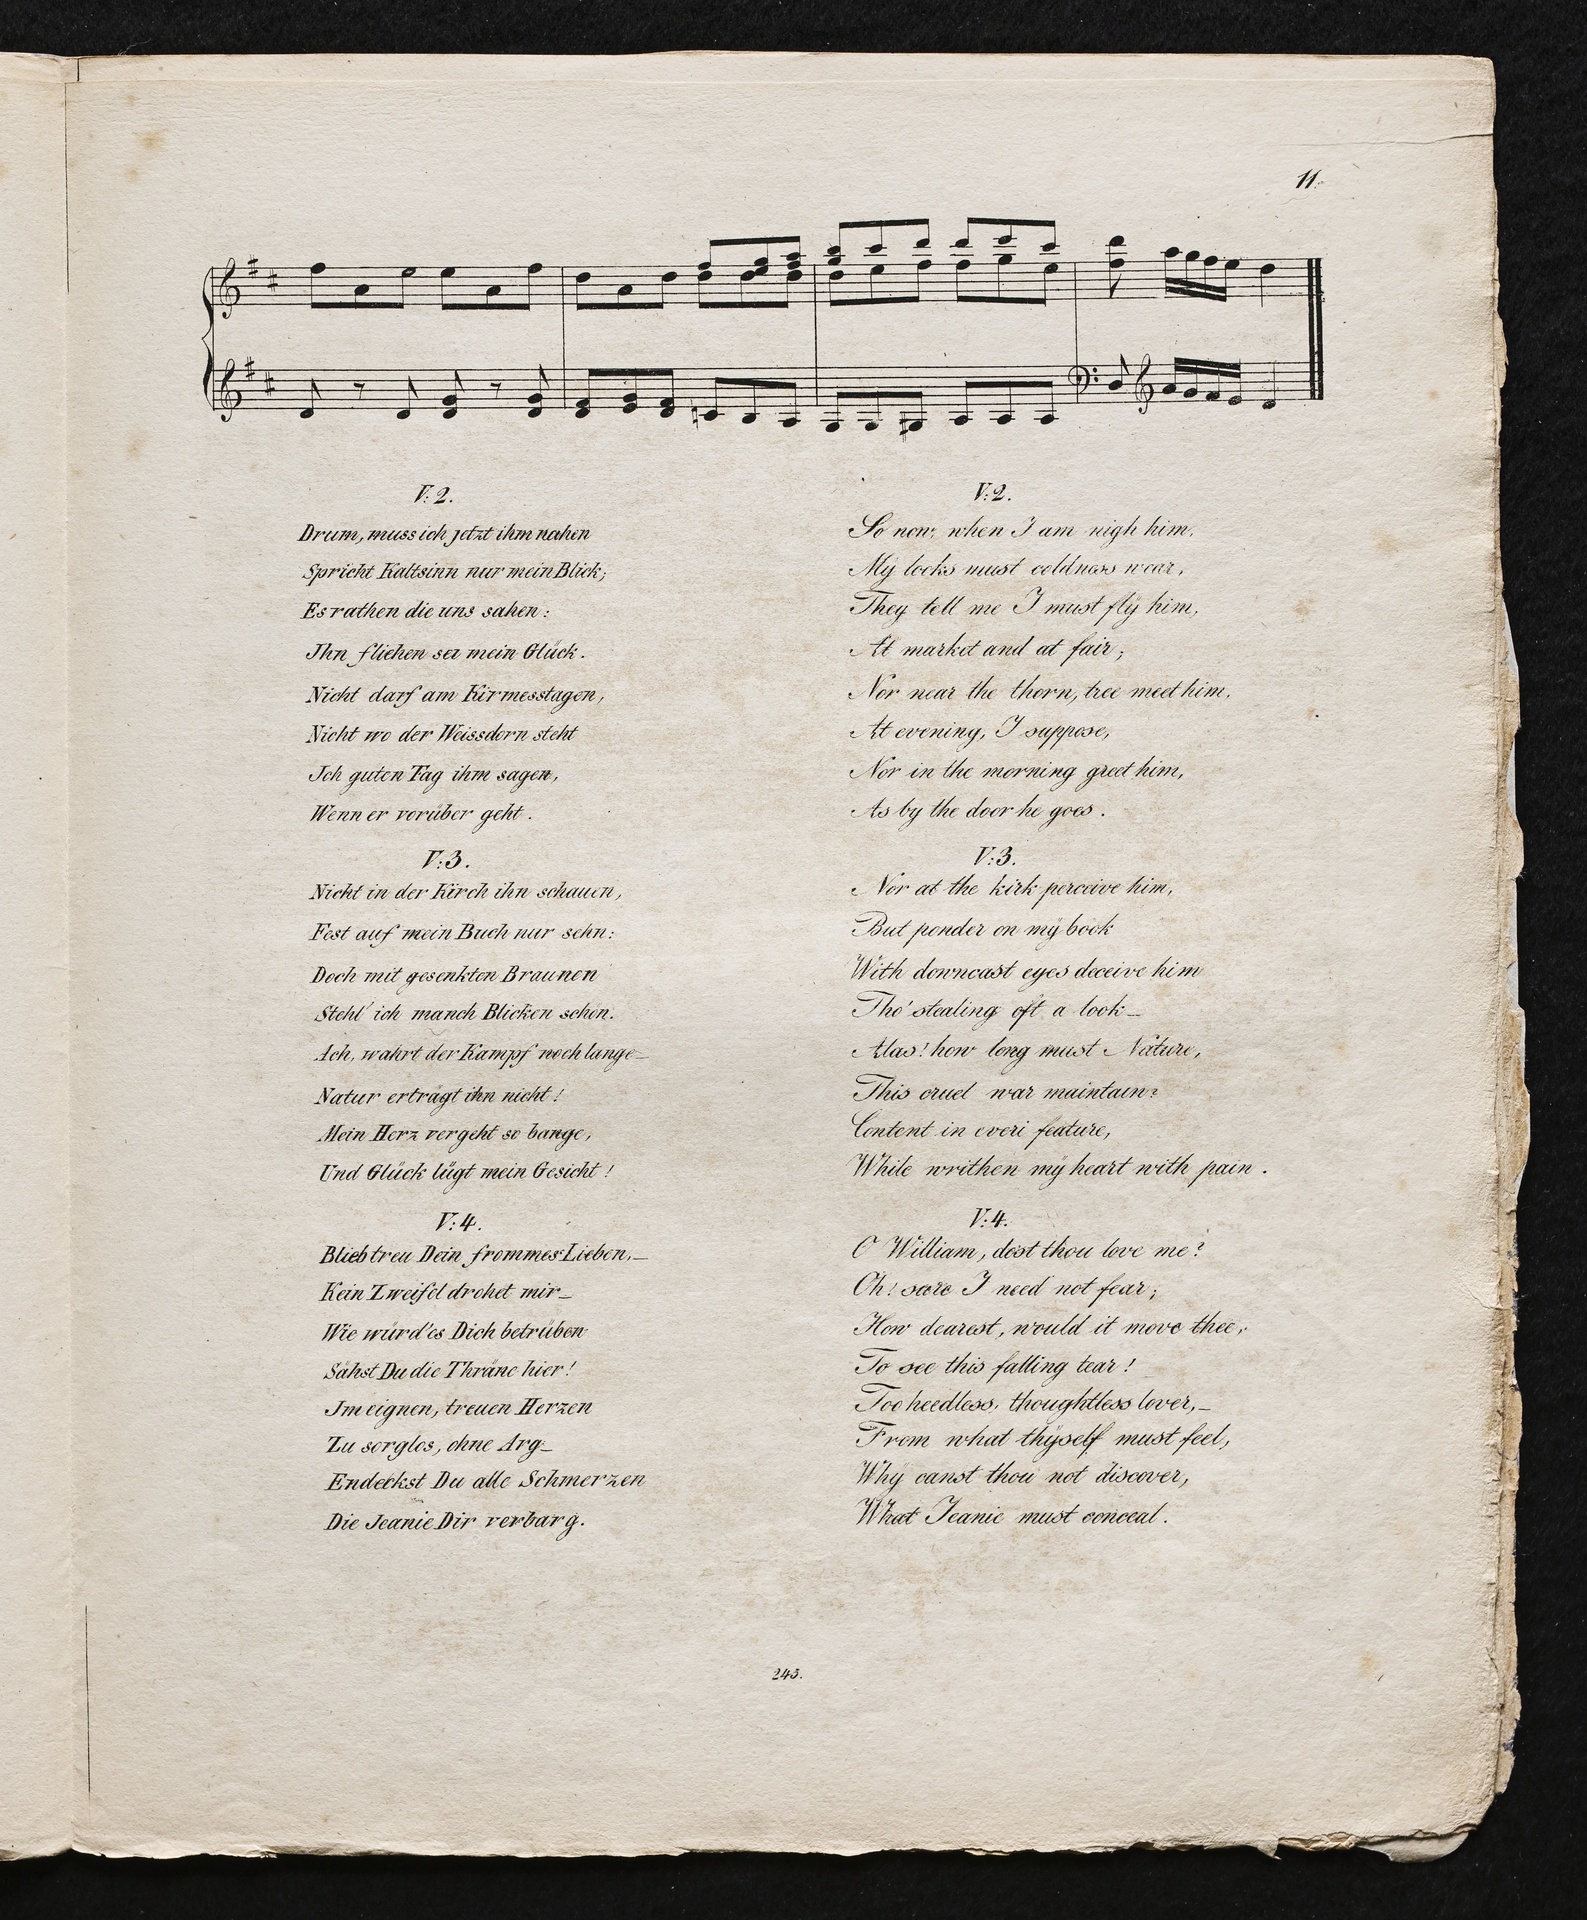 11.
V: 2.
Drum, muss ich jetzt ihm nahen
Spricht Kaltsinn nur mein Blick;
Es rathen die uns sahen:
Jhn fliehen sei mein Glück.
Nicht darf am Kirmesstagen,
Nicht wo der Weissdorn steht
Jch guten Tag ihm sagen,
Wenn er vorüber geht.
V: 3.
Nicht in der Kirch ihn schauen,
Fest auf mein Buch nur sehn:
Doch mit gesenkten Braunen
Stehl' ich manch Blicken schön.
Ach, währt der Kampf noch lange_
Natur erträgt ihn nicht!
Mein Herz vergeht so bange,
Und Glück lügt mein Gesicht!
V: 4.
Blieb treu Dein frommes Lieben,_
Kein Zweifel drohet mir_
Wie würd'es Dich betrüben
Sähst Du die Thräne hier!
Jm eignen, treuen Herzen
Zu sorglos, ohne Arg_
Endeckst Du alle Schmerzen
Die Jeanie Dir verbarg.
V: 2.
So now, when I am nigh him,
My looks must coldness wear,
They tell me I must flÿ him,
At market and at fair;
Nor near the thorn, tree meet him,
At evening, I suppose,
Nor in the morning greet him,
As by the door he goes.
V: 3.
Nor at the kirk perceive him,
But ponder on mÿ book
With downcast eyes deceive him
Tho' stealing oft a look_
Alas! how long must Nature,
This cruel war maintain?
Content in everi feature,
While writhen mÿ heart with pain.
V: 4.
O William, dost thou love me?
Oh! sure I need not fear;
How dearest, would it move thee,
To see this falling tear!
Too heedless, thoughtless lover,_
From what thÿself must feel,
Whÿ canst thou not discover,
What Jeanie must conceal.
245.